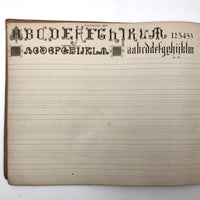 ABCDEFGHIKLM 123455
ABCDEFGHIJKLM aabcddefgghijklm